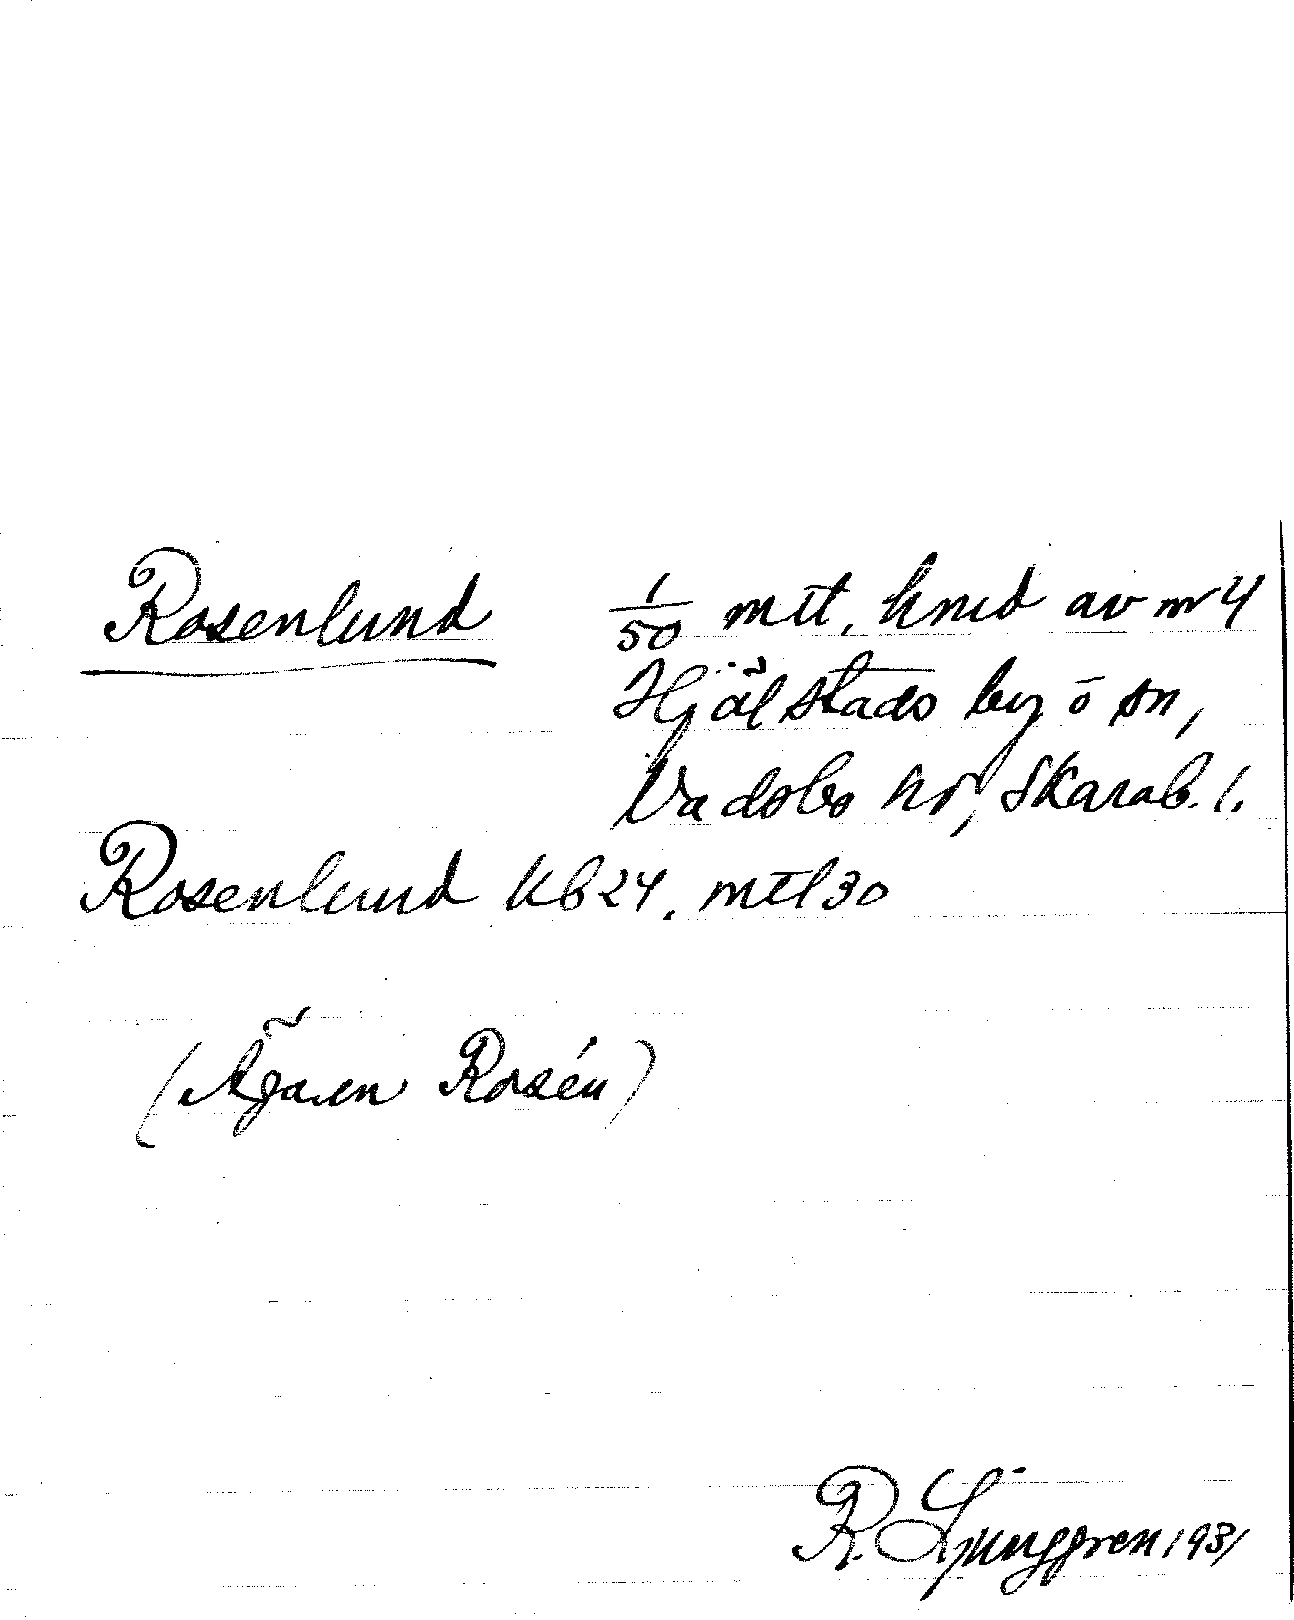 Rosenlund 1/50 mtl. hmd av nr 4
Hjälstads by o sn,
Vadsbo hd, Skarab. l.
Rosenlund kb 24. mtl 30
(Ägaren Rosén)
R. Ljunggren 1931